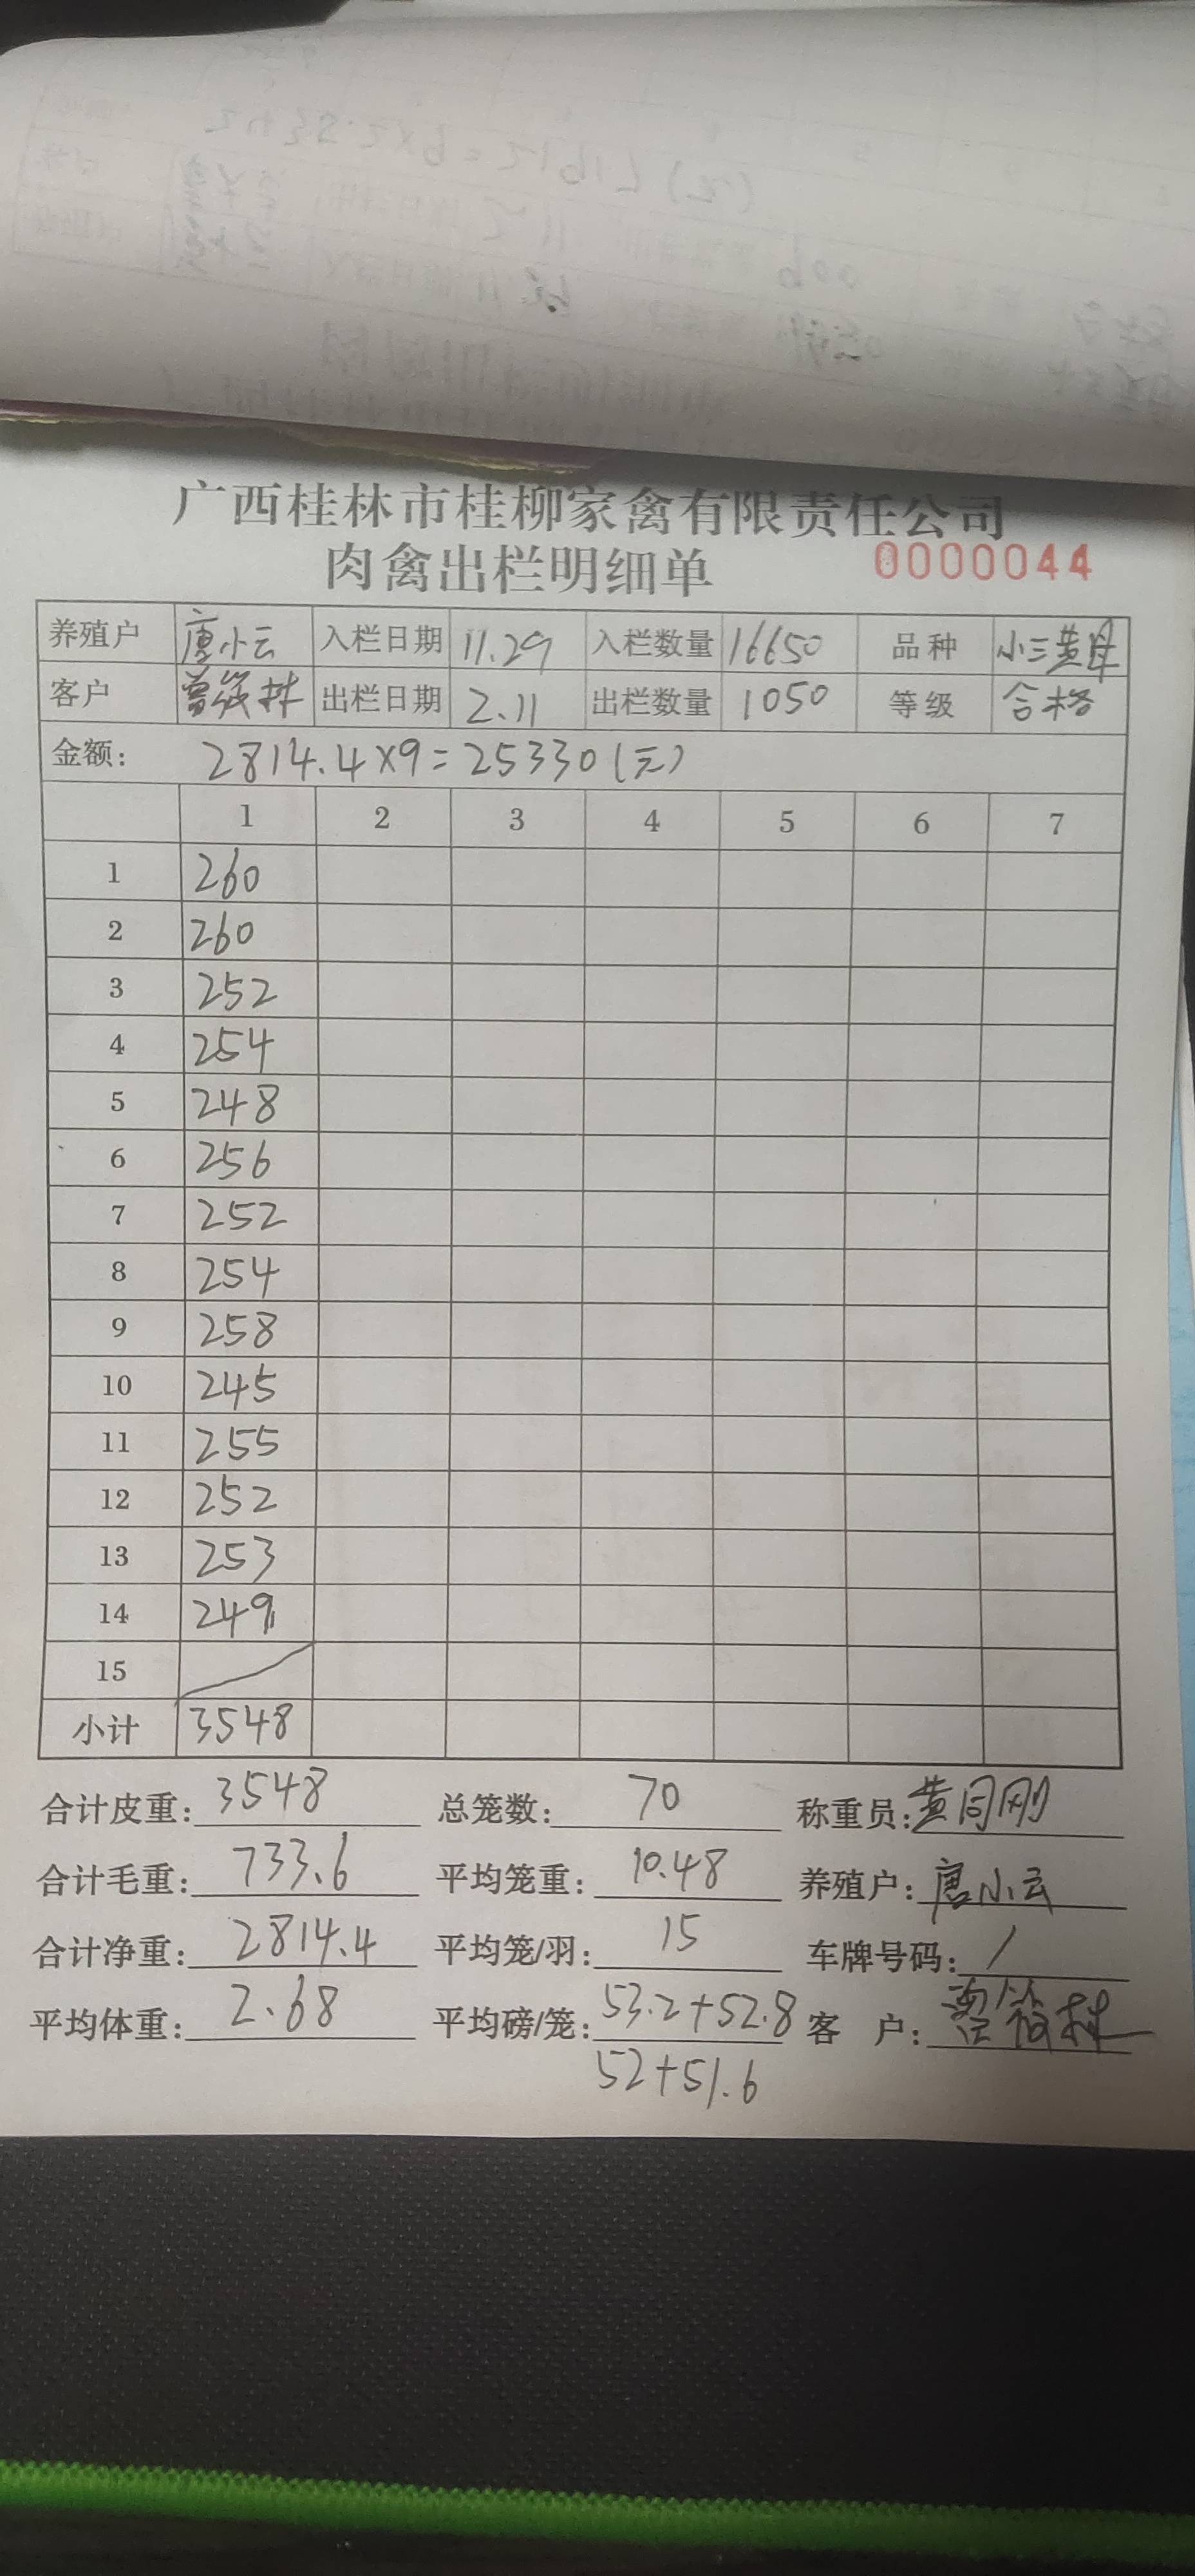 广西桂林市桂柳家禽有限责任公司
肉禽出栏明细单 0000044
养殖户 唐小云 入栏日期 11.29 入栏数量 16650 品种 小三黄母
客户 出栏日期 2.11 出栏数量 1050 等级 合格
金额: 2814.4×9=25330(元)
1 2 3 4 5 6 7
1 260
2 260
3 252
4 254
5 248
6 256
7 252
8 254
9 258
10 245
11 255
12 252
13 253
14 249
15
小计 3548
合计皮重: 3548 总笼数: 70 称重员: 黄同刚
合计毛重: 733.6 平均笼重: 10.48 养殖户: 唐小云
合计净重: 2814.4 平均笼/羽: 15 车牌号码: /
平均体重: 2.68 平均磅/笼: 53.2+52.8 客 户:
52+51.6